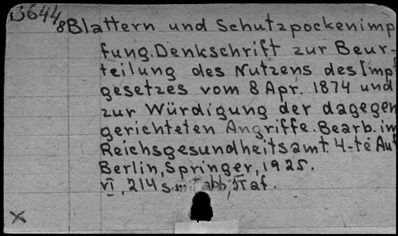 B644
8 Blattern und Schutzpockenimp
fung. Denkschrift zur Beur-
teilung des Nutzens des Impf
gesetzes vom 8 Apr. 1874 und
zur Würdigung der dagegen
gerichteten Angriffe. Bearb. im
Reichsgesundheitsamt. 4-te Auf
Berlin, Springer, 1925.
VI, 214 s. mit abb., Taf.
x